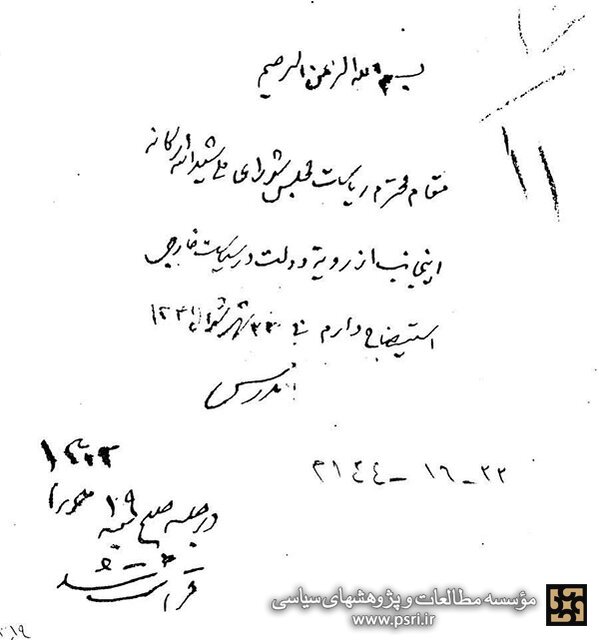 بسم الله الرحمن الرحیم
۱۱
مقام محترم ریاست مجلس شورای ملی شید الله ارکانه
اینجانب از رویه دولت در سیاست خارجی
استیضاح دارم شهر شوال
مدرس
۲۱۴۴ - ۱۶ - ۲۲
در جلسه صبح شنبه ۱۹
قرائت شد
مؤسسه مطالعات و پژوهشهای سیاسی
www.psri.ir